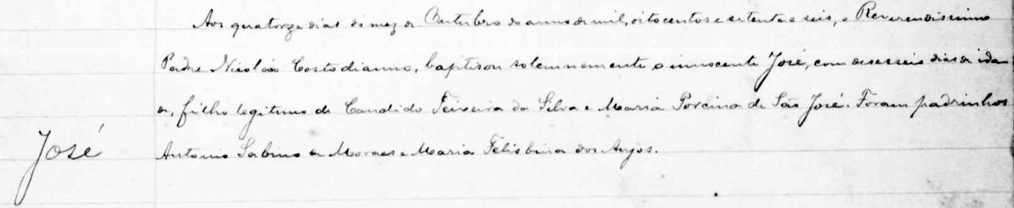 Aos quatorze dias do mez de Outubro do anno de mil, oitocentos e setenta e seis, o Reverendissimo
Padre Nicoláo Costodianno, baptisou solemnemente o innocente José, com deseseis dias de ida-
de, filho legitimo de Candido Teixeira da Silva e Maria Porcina de São José. Foram padrinhos
José
Antonio Sabino de Moraes e Maria Felisbina dos Anjos.